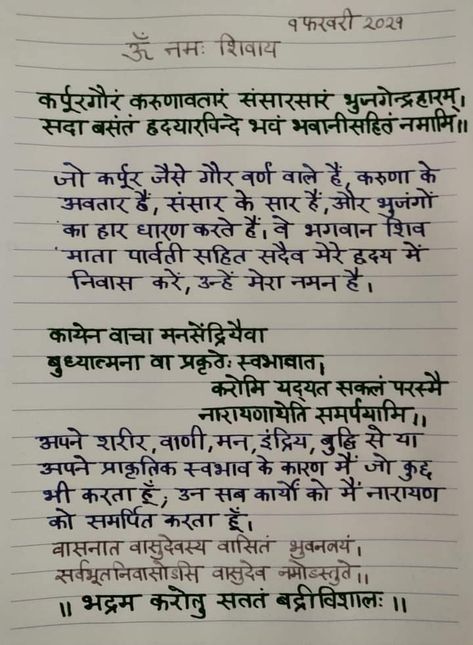 १ फरवरी २०२१
ॐ नमः शिवाय
कर्पूरगौरं करुणावतारं संसारसारं भुजगेन्द्रहारम्।
सदा बसंतं हृदयारविन्दे भवं भवानीसहितं नमामि॥
जो कर्पूर जैसे गौर वर्ण वाले हैं, करुणा के
अवतार हैं, संसार के सार हैं, और भुजंगों
का हार धारण करते हैं। वे भगवान शिव
माता पार्वती सहित सदैव मेरे हृदय में
निवास करें, उन्हें मेरा नमन है।
कायेन वाचा मनसेंद्रियैवा
बुध्यात्मना वा प्रकृतेः स्वभावात।
करोमि यद्यत सकलं परस्मै
नारायणायेति समर्पयामि॥
अपने शरीर, वाणी, मन, इंद्रिय, बुद्धि से या
अपने प्राकृतिक स्वभाव के कारण मैं जो कुछ
भी करता हूँ, उन सब कार्यों को मैं नारायण
को समर्पित करता हूँ।
वासनात वासुदेवस्य वासितं भुवनत्रयं।
सर्वभूतनिवासोऽसि वासुदेव नमोऽस्तुते॥
॥ भद्रम करोतु सततं बद्रीविशालः ॥